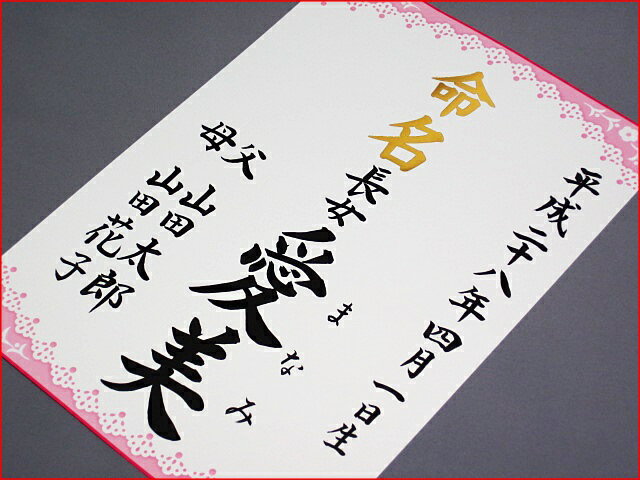 平成二十八年四月一日生
命名
長女
愛美
まなみ
父 山田太郎
母 山田花子